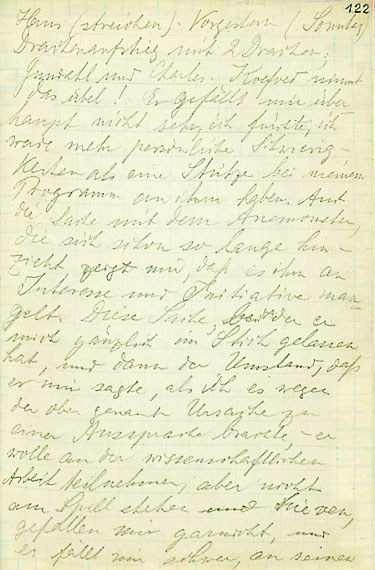 122
Haus (streichen). Vorgestern (Sonntag)
Drachenaufstieg mit 2 Drachen;
und Charles. Koefoed nimmt
das übel! Er gefällt mir über
haupt nicht sehr, ich fürchte, ich
werde mehr persönliche Schwierig-
keiten als eine Stütze bei meinem
Programm an ihm haben. Auch
die Sache mit dem Anemometer,
die sich schon so lange hin-
zieht, zeigt mir, daß es ihm an
Interesse und Initiative man-
gelt. Diese Sache, bei der er
mich gänzlich im Stich gelassen
hat, und dann der Umstand, daß
er mir sagte, als ich es wegen
der oben genannte Ursache zu
einer Aussprache brachte, - er
wolle an der wissenschaftlichen
Arbeit teilnehmen, aber nicht
am Spill stehen und hieven,
gefallen mir garnicht, und
es fällt mir schwer, an seinen